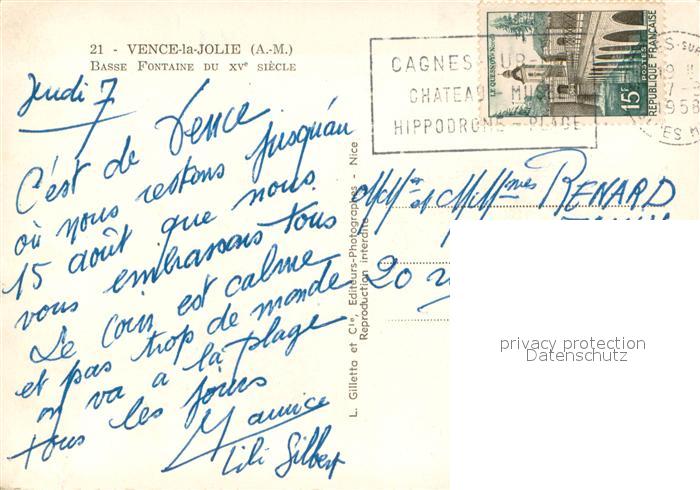 21 - VENCE-la-JOLIE (A.-M.)
BASSE FONTAINE DU XVe SIÈCLE
Jeudi 7
C'est de Vence
où nous restons jusqu'au
15 août que nous
vous embrassons tous
Le coin est calme
et pas trop de monde
on va a la plage
tous les jours
Maurice
Lili Gilbert
L. Gilletta et Cie, Editeurs-Photographes - Nice
Reproduction interdite
CAGNES-SUR-
CHATEAU - MUSÉE
HIPPODROME - PLAGE
LE QUESNOY (Nord)
15F
POSTES
REPUBLIQUE FRANÇAISE
1958
RENARD
20
privacy protection
Datenschutz